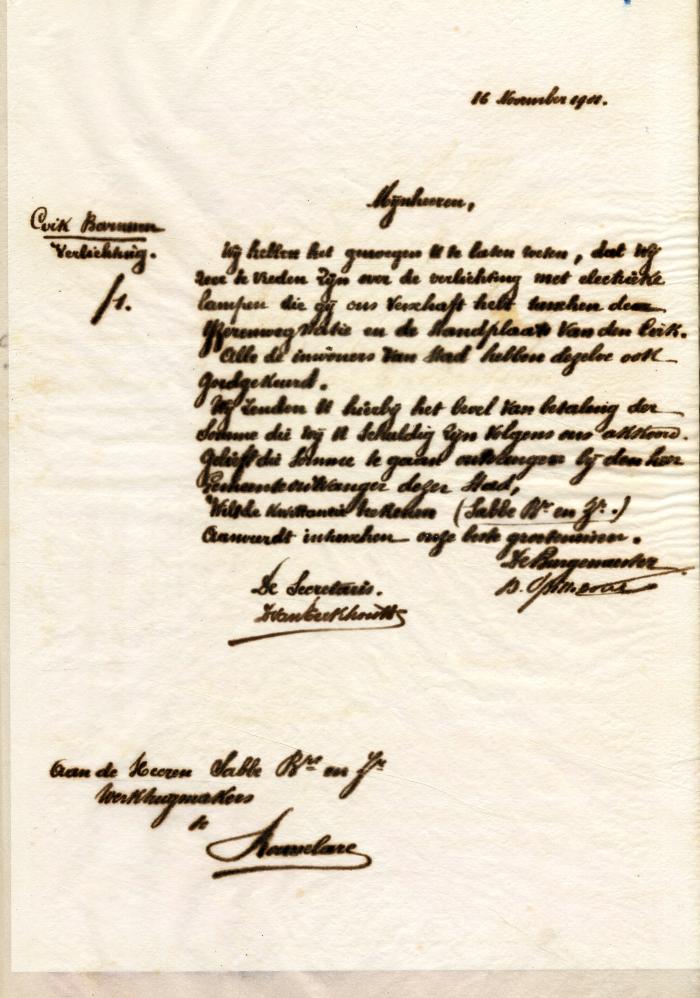 16 November 1901.
Mijnheeren,
Cirk Barnum
Verlichting.
f1.
Wij hebben het genoegen U te laten weten, dat wij
zeer te vreden zijn over de verlichting met electrieke
lampen die gij ons verschaft hebt tusschen den
Yzerenweg statie en de standplaats van den Cirk.
Alle de inwoners van stad hebben dezelve ook
goedgekeurd.
Wij zenden U hierbij het bevel van betaling der
somme die wij U schuldig zijn volgens ons akkoord.
Gelieft die somme te gaan ontvangen bij den heer
Gemeenteontvanger dezer Stad,
Wilt de kwitantie teekenen (Sabbe Brs en Zr.)
Aanvaardt intusschen onze beste groetenissen.
De Burgemeester
De Secretaris.
Aan de Heeren Sabbe Brs en Zr
Werktuigmakers
te
Rousselare